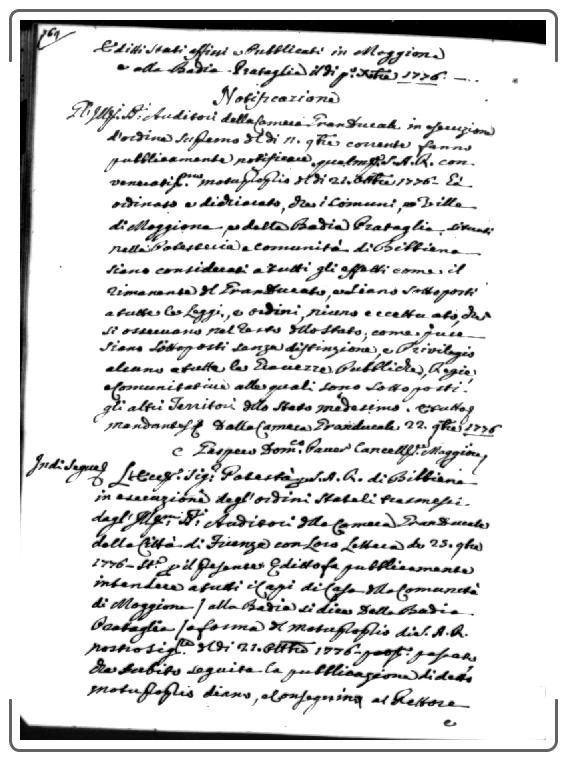 769
Editti Stati affissi e Pubblicati in Moggiona
e alla Badia Prataglia il dì p.º Xbre 1776. —
Notificazione
Gl' Ill.mi SS.ri Auditori della Camera Granducale in esecuzione
d'ordine supremo del dì 11. 9bre corrente fanno
pubblicamente notificare, qualm.te S. A. R. con
veneratiss.mo motuproprio del dì 21. Ottbre 1776. Ha
ordinato e dichiarato, che i Comuni, e Ville
di Moggiona, e della Badia Prataglia, situati
nella Potesteria e Comunità di Bibbiena
siano considerati a tutti gli effetti come il
rimanente del Granducato, e siano sottoposti
a tutte le Leggi, e ordini, niuno eccettuato, che
si osservano nel resto dello Stato, come pure
siano sottoposti senza distinzione, e Privilegio
alcuno a tutte le Gravezze Pubbliche, Regie
e Comunitative alle quali sono sottoposti
gli altri Territori dello Stato medesimo. E tutto
mandantes &. Dalla Camera Granducale 22. 9bre 1776
Gaspero Dom.co Paver Cancell.re Moggiona
Indi Segue
L'Eccell.mo Sig.r Potestà p S. A. R. di Bibbiena
in esecuzione degl'ordini statoli trasmessi
dagl' Ill.mi SS.ri Auditori della Camera Granducale
della Città di Firenze con Loro Lettera de 25. 9bre
1776 - St.e p il presente Editto fa pubblicamente
intendere a tutti i Capi di Casa della Comunità
di Moggiona / alla Badia si dice della Badia
Prataglia / a forma del motuproprio di S. A. R.
nostro Sig.re del dì 21. Ottbre 1776 pross. passato
che subito seguita la pubblicazione di detto
motuproprio diano, e consegnino al Rettore
e